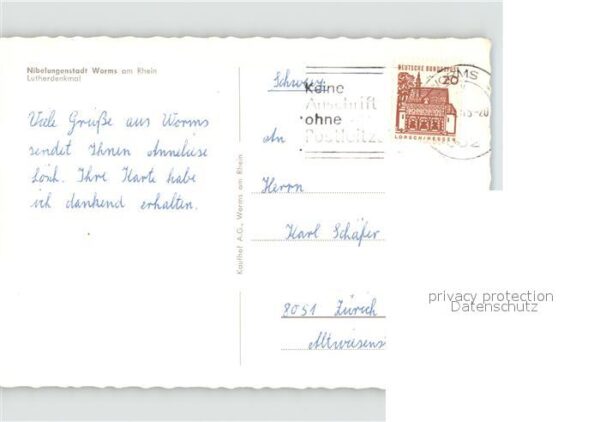 Nibelungenstadt Worms am Rhein
Lutherdenkmal
Viele Grüße aus Worms
sendet Ihnen Anneliese
Lösch. Ihre Karte habe
ich dankend erhalten.
Kaufhof A.G., Worms am Rhein
Schweiz
Keine
Anschrift
ohne
Postleitza
DEUTSCHE BUNDESPOST
20
LORSCH/HESSEN
An
Herrn
Karl Schäfer
8051 Zürich
privacy protection
Datenschutz